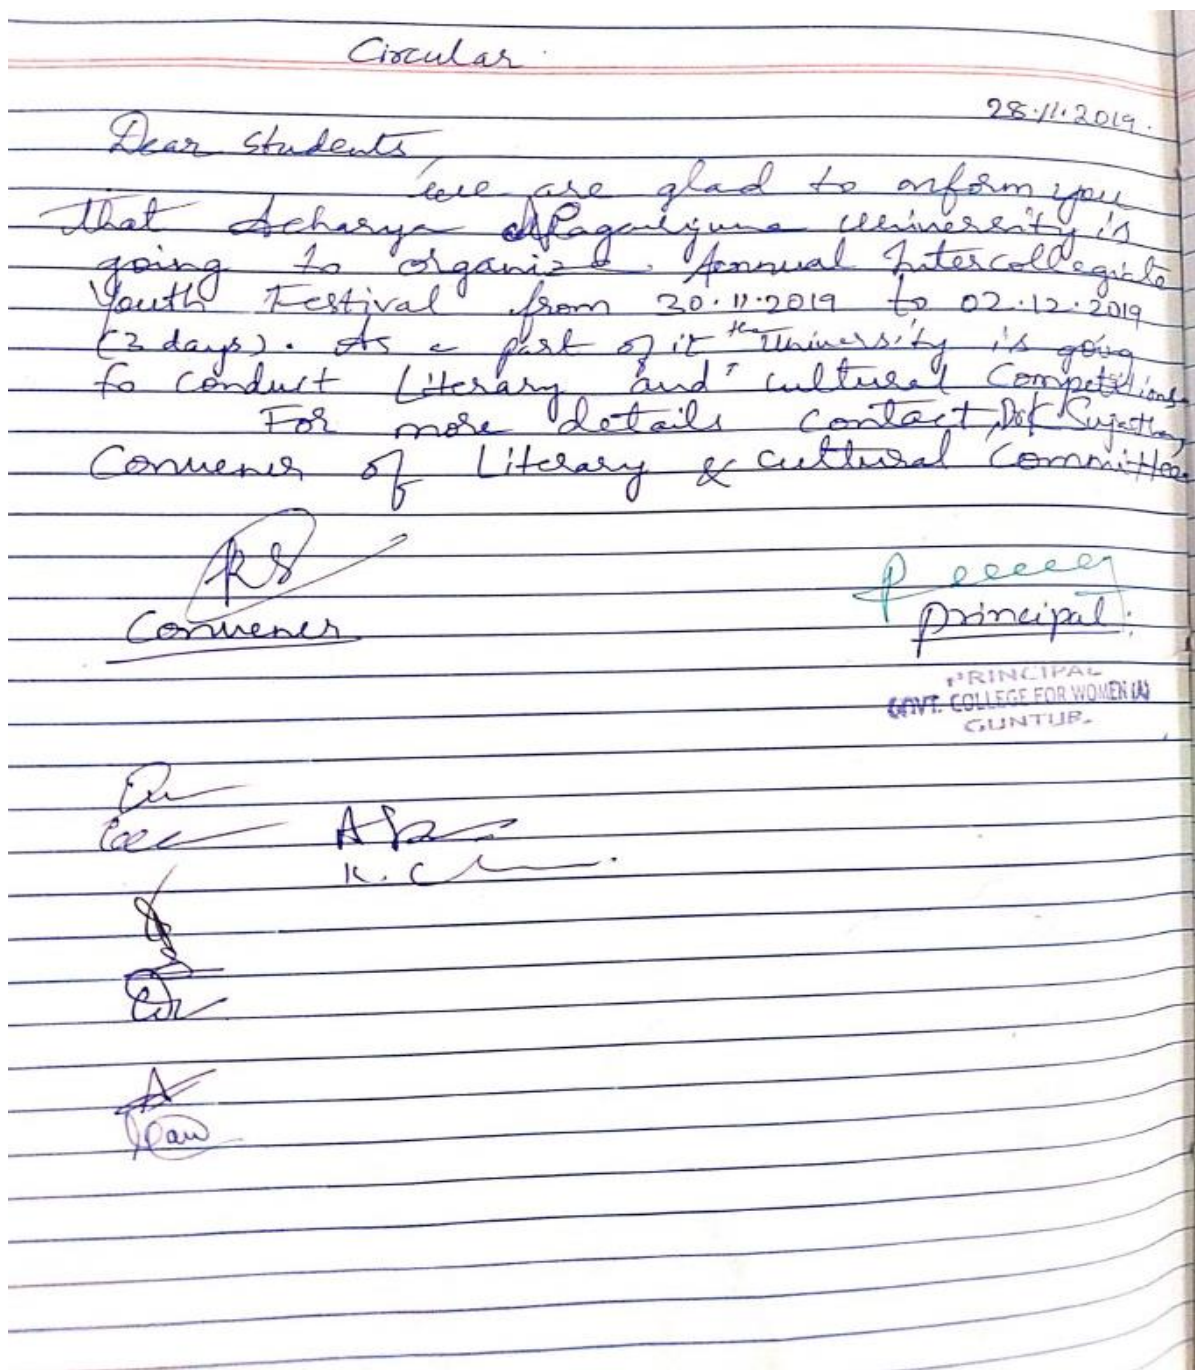 Circular.
28.11.2019.
Dear Students,
we are glad to inform you
that Acharya Nagarjuna University is
going to organize Annual Intercollegiate
Youth Festival from 30.11.2019 to 02.12.2019
(3 days). As a part of it the University is going
to conduct Literary and cultural Competitions.
For more details contact, Dr K Sujatha,
Convener of Literary & cultural Committee.
Convener
Principal.
PRINCIPAL
GOVT. COLLEGE FOR WOMEN (A)
GUNTUR.